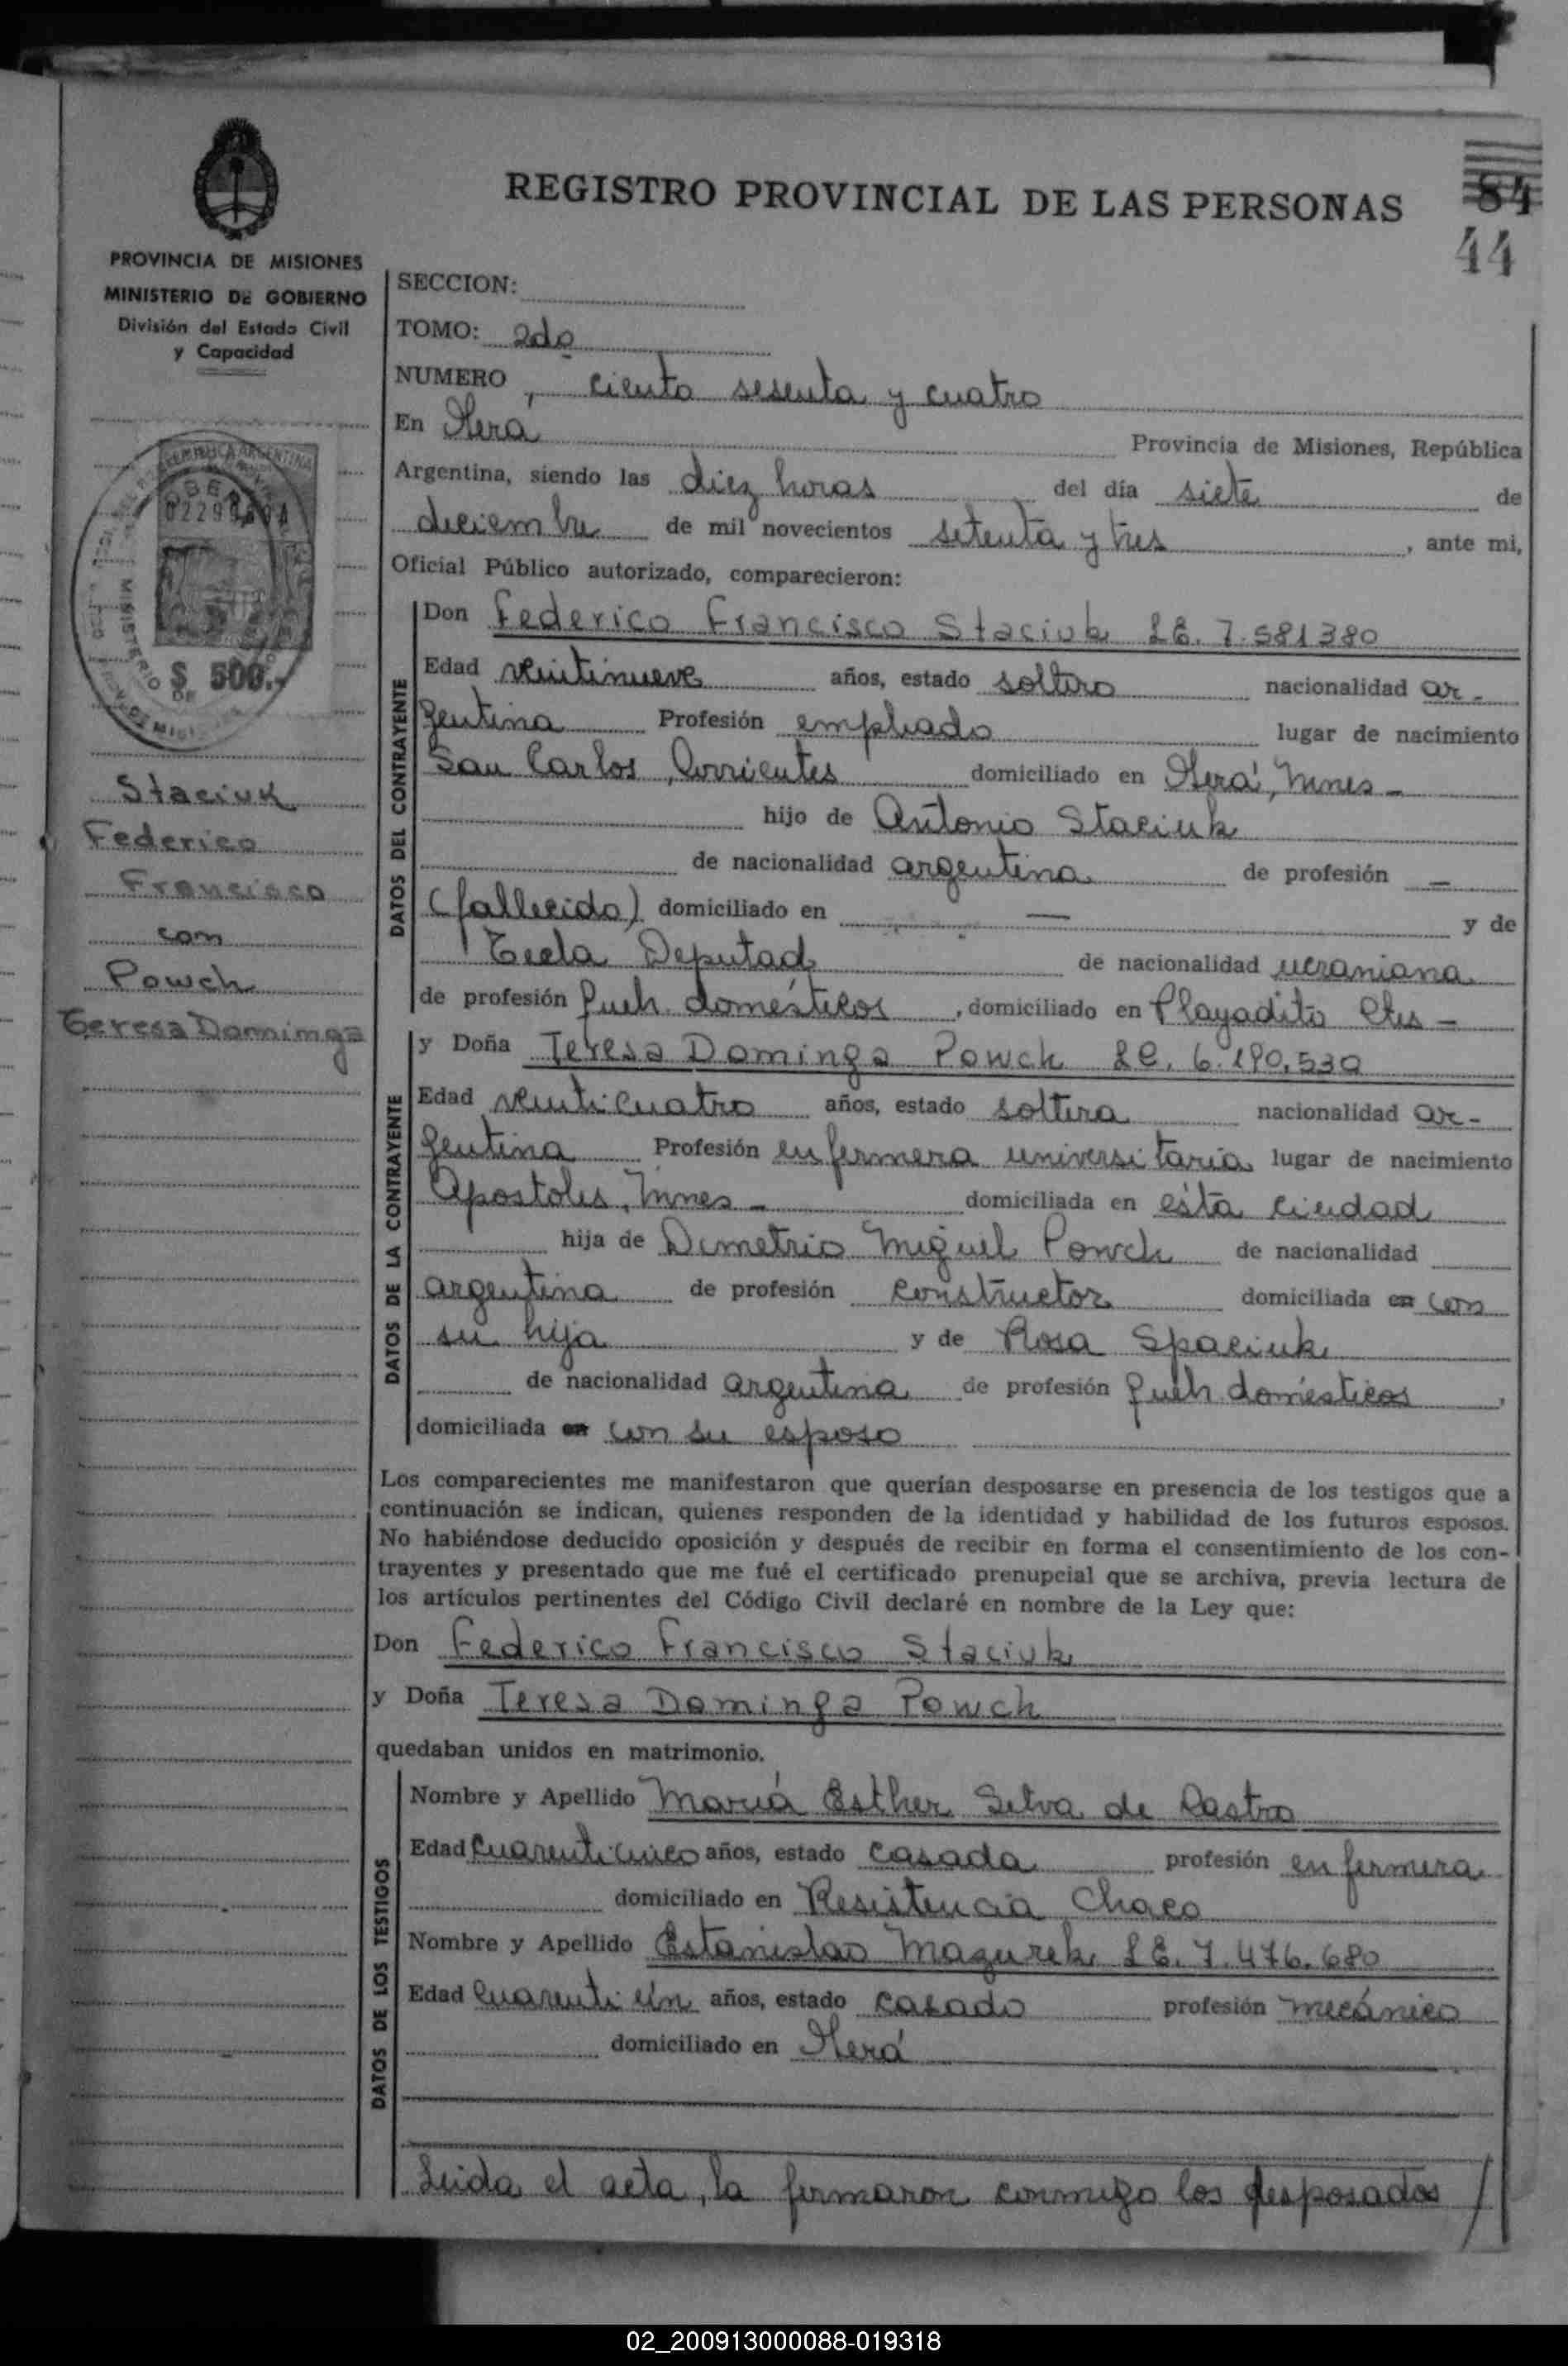 REGISTRO PROVINCIAL DE LAS PERSONAS
84
44
PROVINCIA DE MISIONES
MINISTERIO DE GOBIERNO
División del Estado Civil
y Capacidad
$ 500.-
Staciuk
Federico
Francisco
con
Powch
Teresa Dominga
SECCION:
TOMO: 2do
NUMERO, ciento sesenta y cuatro
En Oberá Provincia de Misiones, República
Argentina, siendo las diez horas del día siete de
diciembre de mil novecientos setenta y tres, ante mi,
Oficial Público autorizado, comparecieron:
DATOS DEL CONTRAYENTE
Don Federico Francisco Staciuk LE. 7.581380
Edad veintinueve años, estado soltero nacionalidad ar-
gentina Profesión empleado lugar de nacimiento
San Carlos, Corrientes domiciliado en Oberá, Mnes-
hijo de Antonio Staciuk
de nacionalidad argentina de profesión —
(fallecido) domiciliado en — y de
Tecla Deputad de nacionalidad ucraniana
de profesión queh. domésticos, domiciliado en Playadito Ctes-
DATOS DE LA CONTRAYENTE
y Doña Teresa Dominga Powch LC. 6.190.530
Edad veinticuatro años, estado soltera nacionalidad ar-
gentina Profesión enfermera universitaria lugar de nacimiento
Apostoles, Mnes- domiciliada en esta ciudad
hija de Demetrio Miguel Powch de nacionalidad
argentina de profesión constructor domiciliada en con
su hija y de Rosa Spaciuk
de nacionalidad argentina de profesión queh. domésticos,
domiciliada en con su esposo
Los comparecientes me manifestaron que querían desposarse en presencia de los testigos que a
continuación se indican, quienes responden de la identidad y habilidad de los futuros esposos.
No habiéndose deducido oposición y después de recibir en forma el consentimiento de los con-
trayentes y presentado que me fué el certificado prenupcial que se archiva, previa lectura de
los artículos pertinentes del Código Civil declaré en nombre de la Ley que:
Don Federico Francisco Staciuk
y Doña Teresa Dominga Powch
quedaban unidos en matrimonio.
DATOS DE LOS TESTIGOS
Nombre y Apellido María Esther Silva de Castro
Edad cuarenticinco años, estado casada profesión enfermera
domiciliado en Resistencia Chaco
Nombre y Apellido Estanislao Mazurek LE. 7.476.680
Edad cuarenti un años, estado casado profesión mecánico
domiciliado en Oberá
Leida el acta, la firmaron conmigo los desposados /
02_200913000088-019318